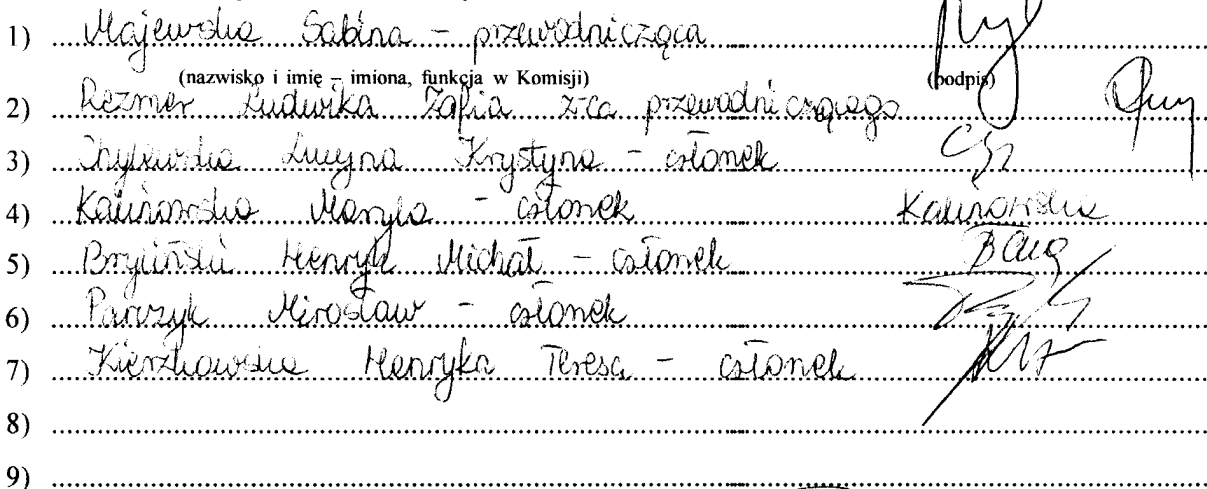 1) Majewska Sabina – przewodnicząca
(nazwisko i imię – imiona, funkcja w Komisji) (podpis)
2) Rezmer Ludwika Zofia z-ca przewodniczącego
3) Chylewska Lucyna Krystyna – członek
4) Kalinowska Maryla – członek Kalinowska
5) Bryliński Henryk Michał – członek
6) Parczyk Mirosław – członek
7) Kierzkowska Henryka Teresa – członek
8)
9)